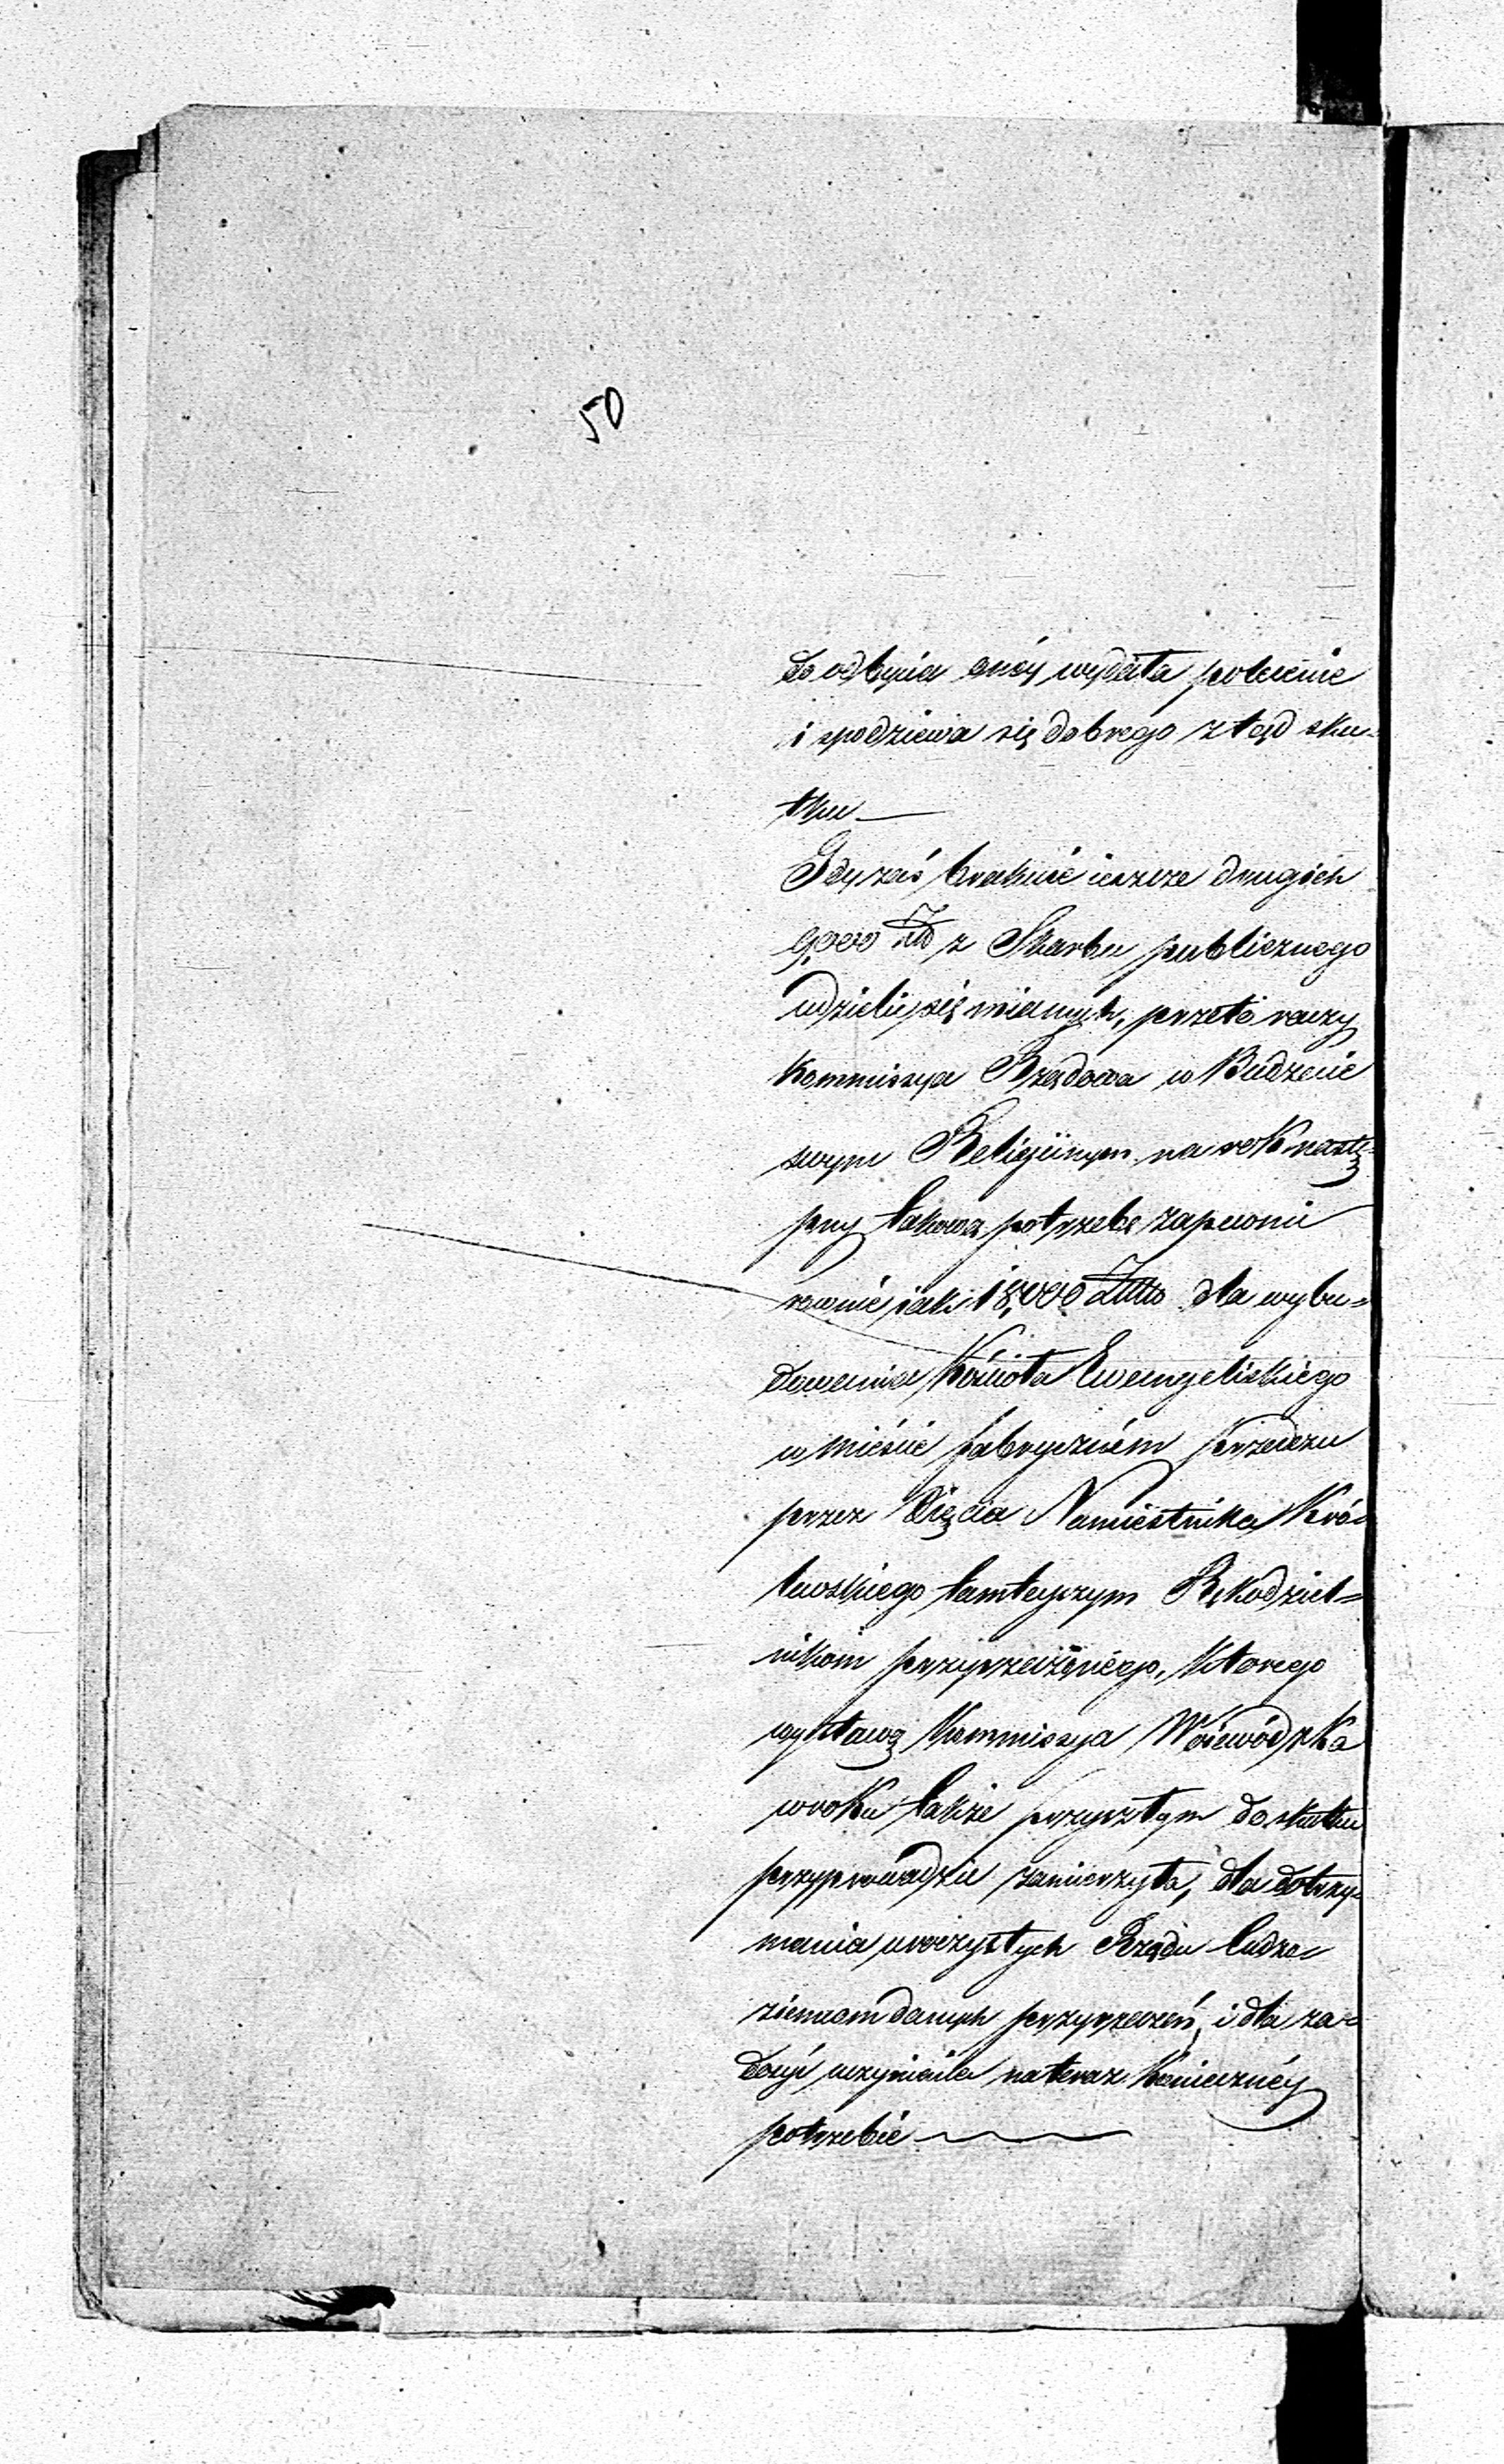 50
do odbycia onéy wydała polecenie
i spodziewa się dobrego ztąd sku-
tku —
Gdy zaś brakuie ieszcze drugich
9,000 Złł z Skarbu publicznego
udzielić się mianych, przeto raczy
Kommissya Rządowa w Budżecie
swym Religiinym na rok nastę-
pny takową potrzebę zapewnić
równie iak 18,000 Złł dla wybu=
dowania Kościoła Ewangelickiego
w mieście fabryczném
przez Xięcia Namiestnika Kró-
lewskiego tamteyszym Rękodziel=
nikom przyrzeczonego, którego
wystawę Kommissya Woiewódzka
w roku także przyszłym do skutku
przyprowadzić zamierzyła, dla dotrzy-
mania uroczystych Rządu Cudzo-
ziemcom danych przyrzeczeń, i dla za-
dosyć uczynienia na teraz koniecznéy
potrzebie —